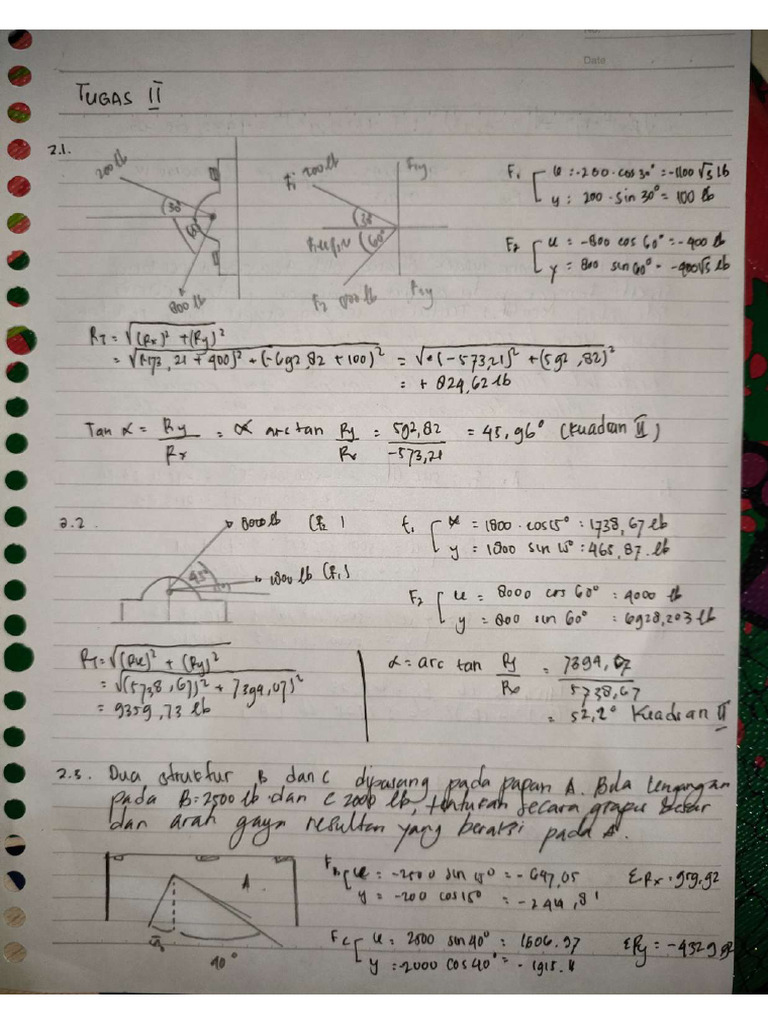 No:
Date
TUGAS II
2.1.
200 lb
30°
60°
800 lb
F1 200 lb
F1y
30°
60°
F2 800 lb
F2y
F1 x = -200 · cos 30° = -100√3 lb
y : 200 · sin 30° = 100 lb
F2 x = -800 cos 60° = -400 lb
y = 800 sin 60° = -400√3 lb
RT = √(Rx)² + (Ry)²
= √(-173,21 + 400)² + (-692,82 + 100)² = √(-573,21)² + (592,82)²
= + 824,62 lb
Tan α = Ry/Rx = α arc tan Ry/Rx = 592,82/-573,21 = 45,96° (Kuadran II)
2.2.
8000 lb (F2)
45°
1800 lb (F1)
F1 x = 1800 · cos 15° : 1738,67 lb
y = 1800 sin 15° : 465,87 lb
F2 x = 8000 cos 60° : 4000 lb
y = 800 sin 60° : 6928,203 lb
RT = √(Rx)² + (Ry)²
= √(5738,67)² + 7394,07)²
= 9359,73 lb
α = arc tan Ry/Rx = 7394,07/5738,67
= 52,2° Kuadran II
2.3. Dua struktur B dan C dipasang pada papan A. Bila tengangan
pada B = 2500 lb dan C 2000 lb, tentukan secara grapis besar
dan arah gaya resultan yang beraksi pada A.
A
40°
FB x = -2500 sin 15° = -647,05
y = -200 cos 15° = -2414,81
ΣRx = 959,92
FC x = 2500 sin 40° : 1606.97
y = -2000 cos 40° = -1915.11
ΣRy = -4329,92